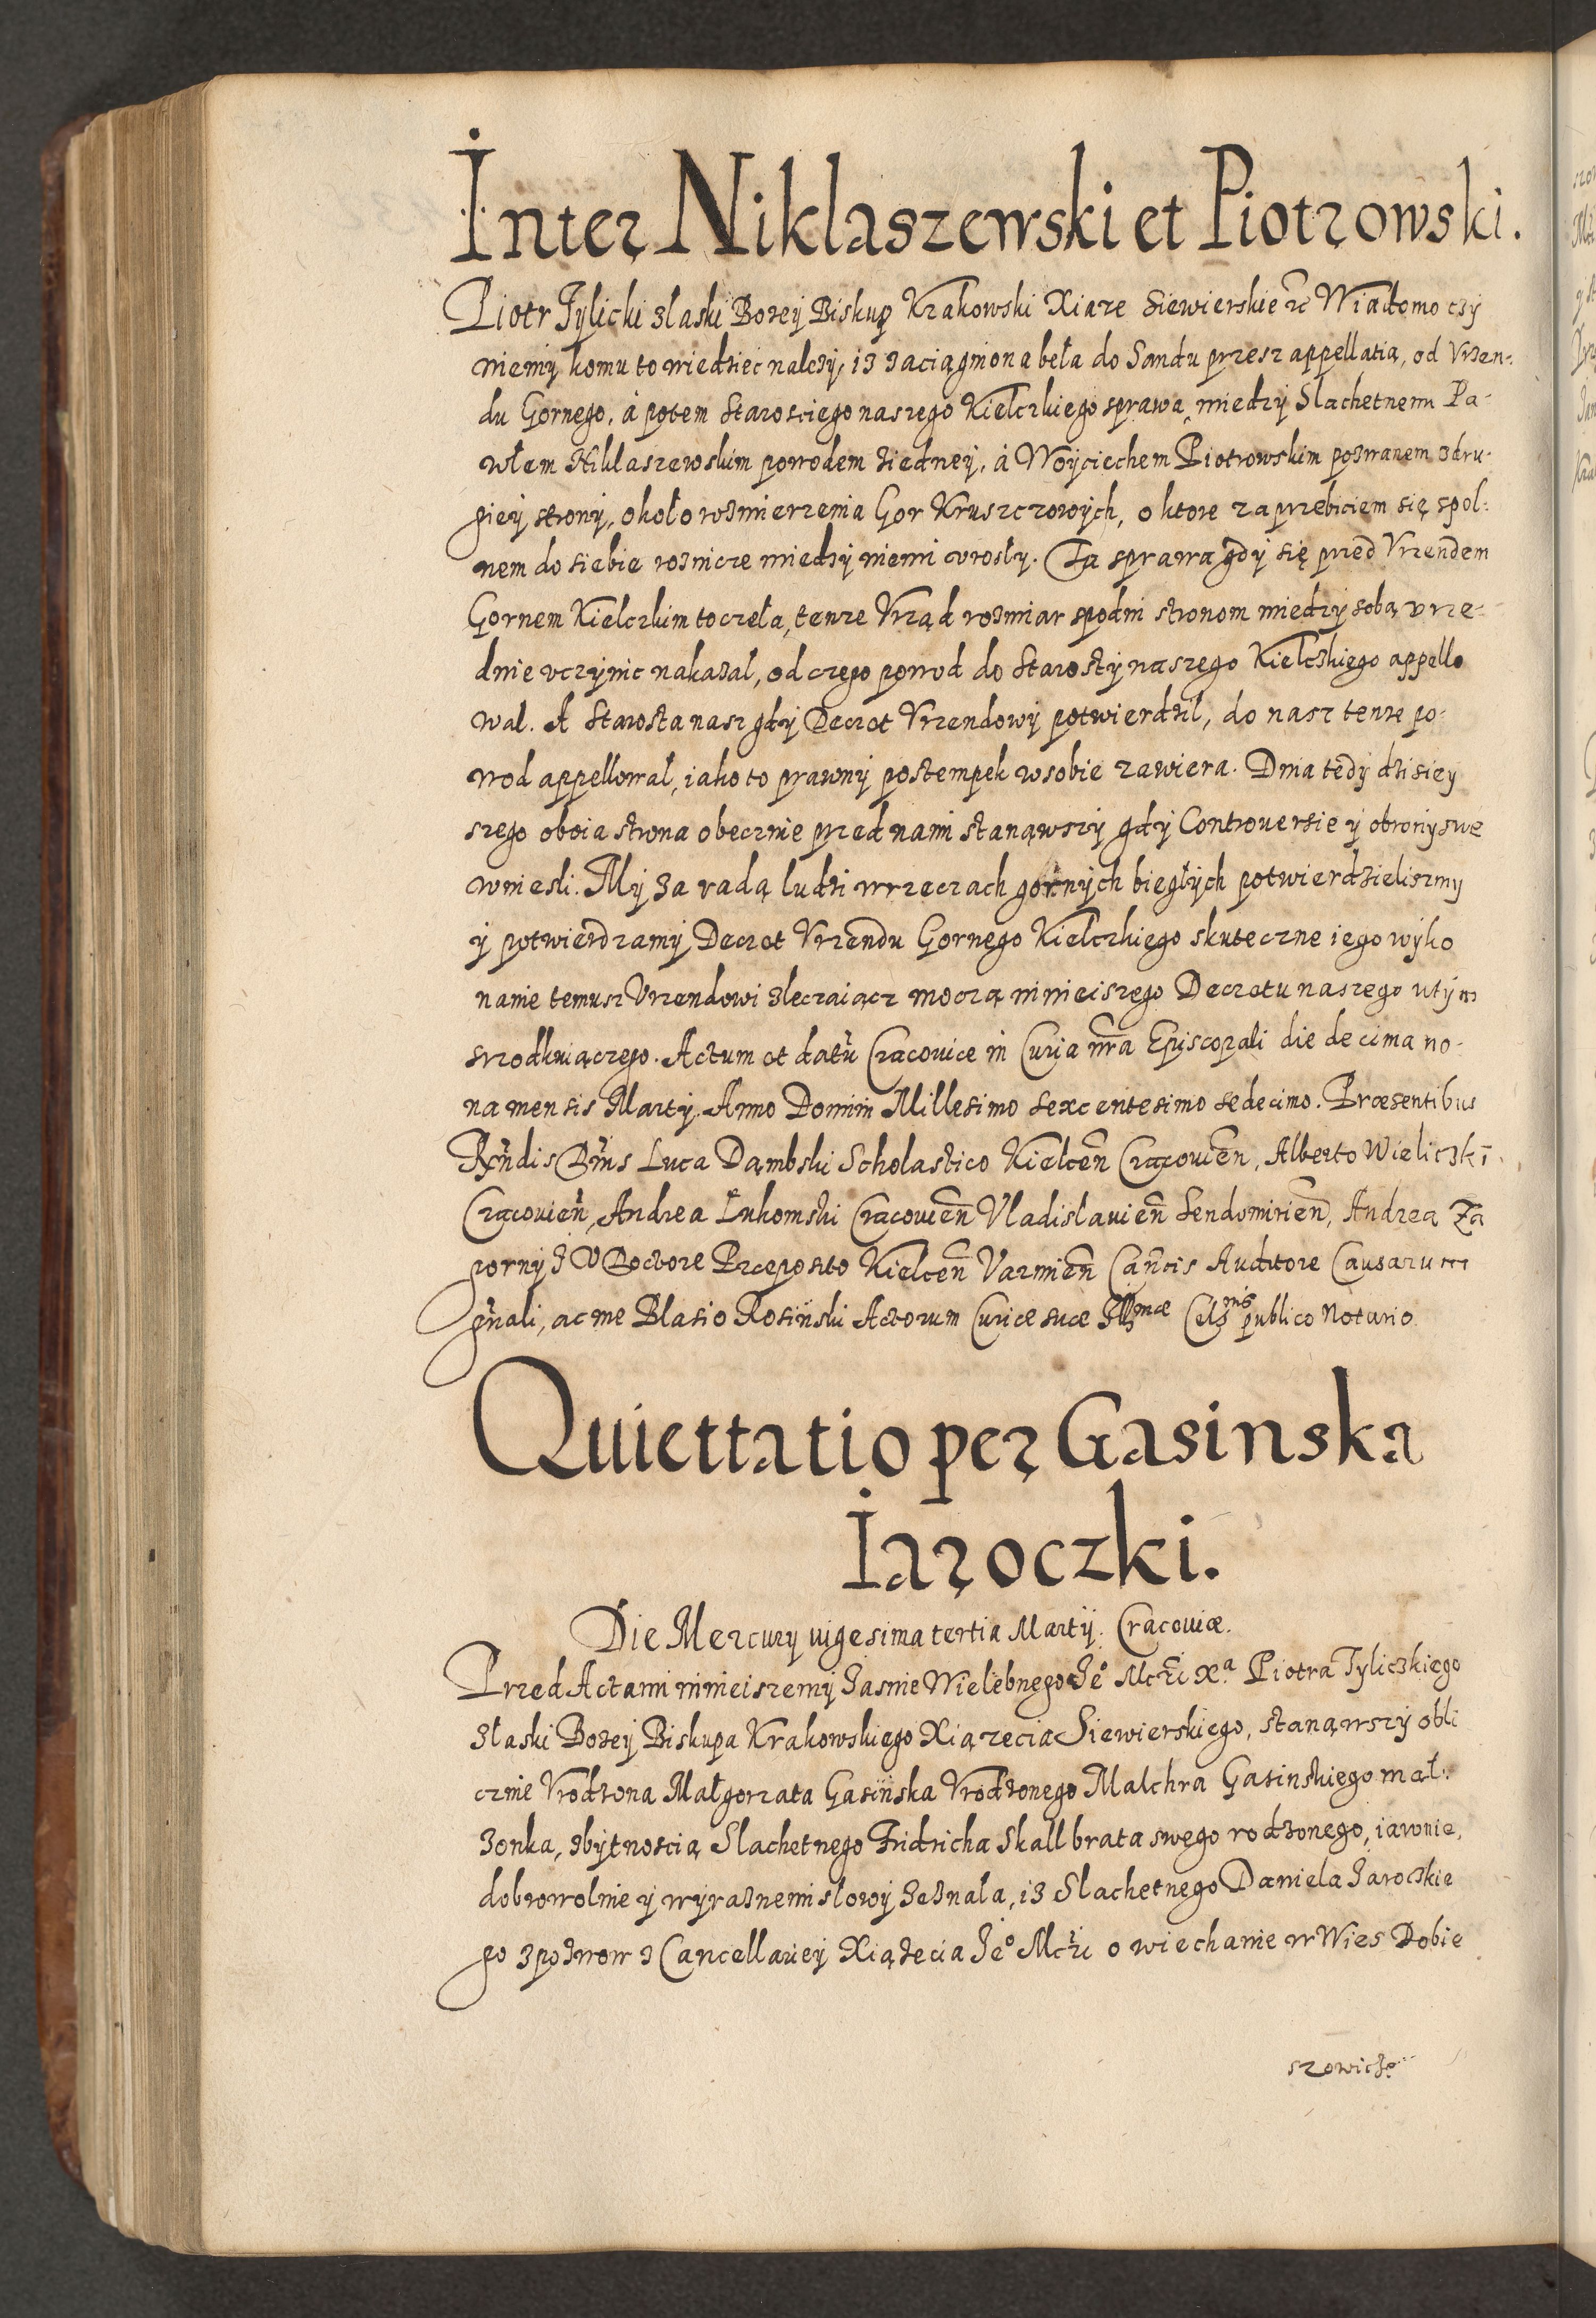 Inter Niklaszewski et Piotrowski.
Piotr Tylicki z łaski Bozey Biskup Krakowski Xiaze Siewierskie etc Wiadomo czy
niemy komu to wiedziec nalezy, iz zaciągniona beła do Sandu przesz appellatią, od Vrzen-
du Gornego, á potem Starosciego naszego Kielczkiego sprawa, miedzy Slachetnem Pa-
włem Niklaszewskim powodem ziedney, á Woyciechem Piotrowskim pozwanem z dru-
giey strony, około rozmierzenia Gor Kruszczowych, o ktore za przebiciem się spol-
nem do siebie roznicze miedzy niemi vrosły. Ta sprawa gdy się przed Vrzendem
Gornem Kielczkim toczeła, tenze Vrząd rozmiar spodni stronom miedzy sobą vrze-
dnie vczynic nakazal, od czego powod do Starosty naszego Kielczkiego appello
wal. A Starosta nasz gdy Decret Vrzendowy potwierdzil, do nasz tenze po-
wod appellowal, iako to prawny postempek w sobie zawiera. Dnia tedy dzisiey
szego oboia strona obecznie przed nami stanąwszy gdy Controuersie y obrony swe
wniesli. My za radą ludzi w rzeczach gornych biegłych potwierdzieliszmy
y potwierdzamy Decret Vrzendu Gornego Kielczkiego skuteczne iego wyko
nanie temusz Vrzendowi zleczaiącz moczą ninieiszego Decretu naszego w tym
srzodkuiączego. Actum et datũ Cracouiæ in Curia nr̃a Episcopali die decima no-
na mensis Marty, Anno Domini Millesimo sexcentesimo sedecimo. Præsentibus
Rñdis Dñis Luca Dąmbski Scholastico Kielceñ Cracouieñ, Alberto Wieliczki
Cracouieñ, Andrea Łukomski Cracouieñ Vladislauieñ Sendomirieñ, Andrea Za
porny I V Doctore Præposito Kielceñ Varmieñ Cañcis Auditore Causarum
gñali, ac me Blasio Rosinski Actorum Curiæ suæ Illmæ Cels publico Notario
Quiettatio per Gasinska
Iaroczki.
Die Mercury vigesima tertia Martij. Cracouiæ.
Przed Actami ninieiszemy Jasnie Wielebnego Jeº Mczi Xa. Piotra Tyliczkiego
z łaski Bozey Biskupa Krakowskiego Xiązecia Siewierskiego, stanąwszy obli
cznie Vrodzona Małgorzata Gasinska Vrodzonego Malchra Gasinskiego mał-
zonka, z bytnoscią Slachetnego Fridricha Skall brata swego rodzonego, iawnie,
dobrowolnie y wyraznemi slowy zeznala, iz Slachetnego Daniela Jaroczkie
go z pozwow z Cancellariey Xiązecia Jeº Mczi o wiechanie w Wies Dobie
szowicze